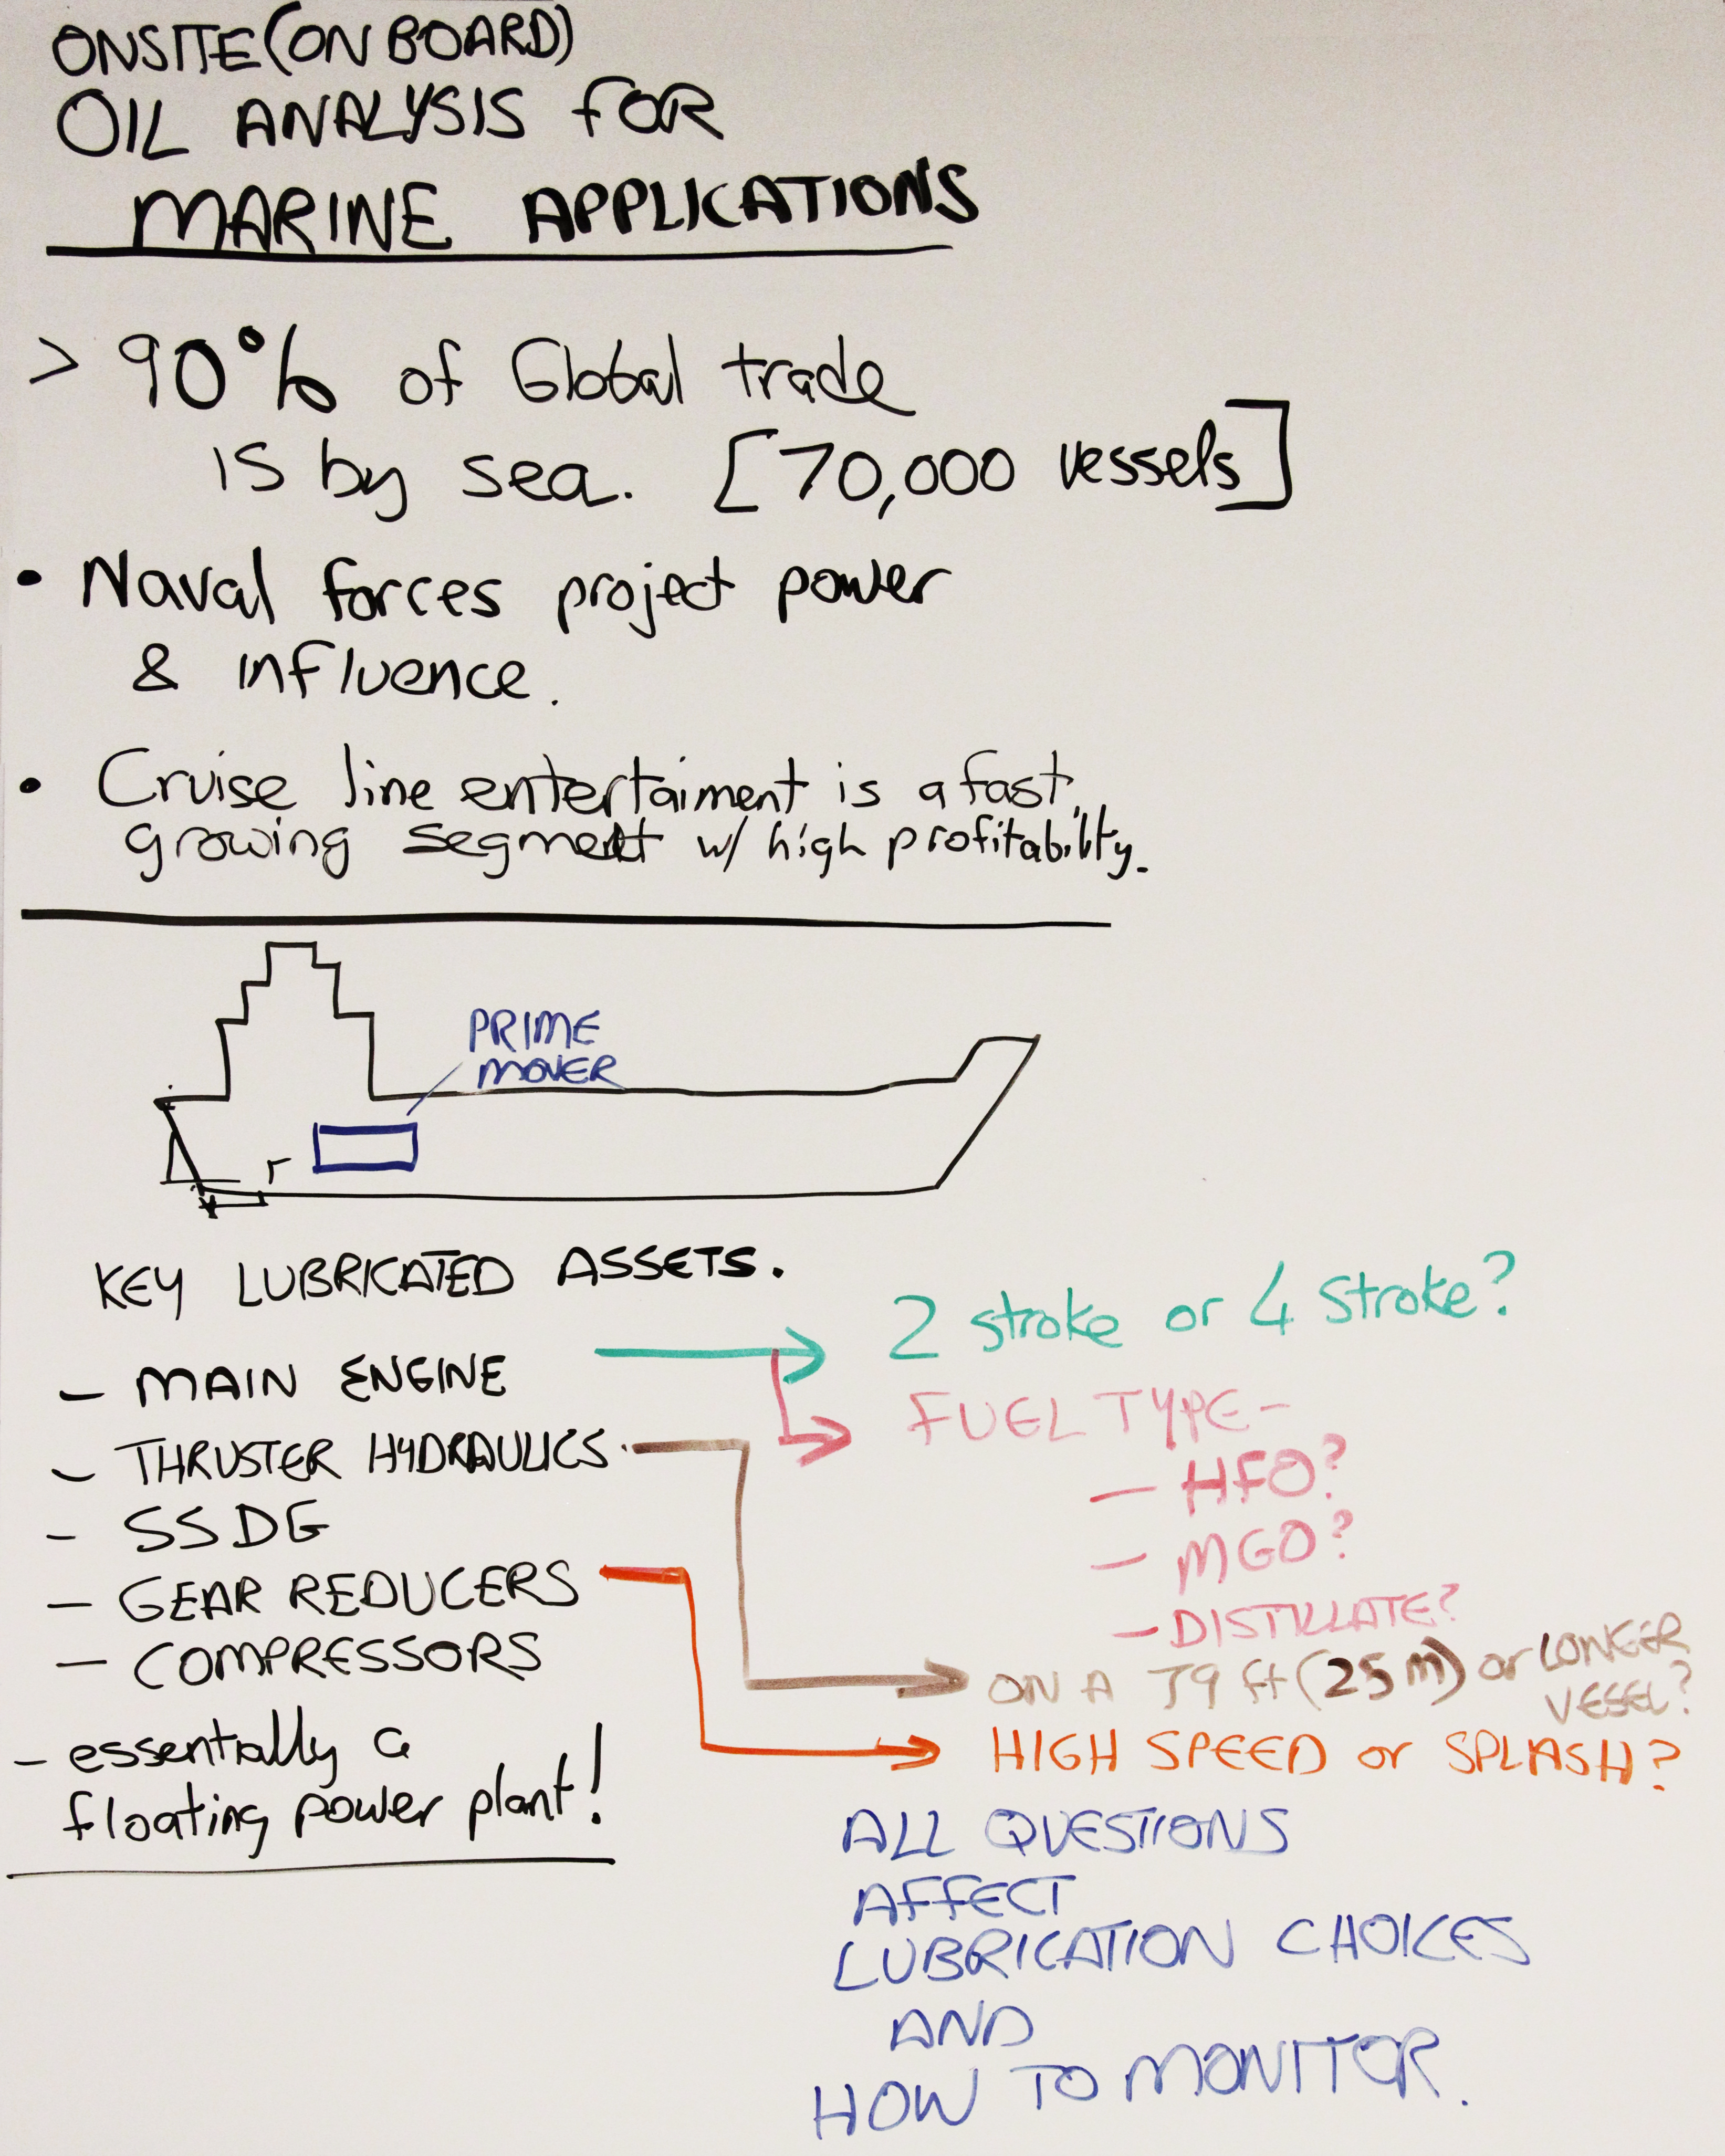 ONSITE (ON BOARD)
OIL ANALYSIS FOR
MARINE APPLICATIONS
> 90% of Global trade
is by sea. [70,000 vessels]
• Naval forces project power
& influence.
• Cruise line entertaiment is a fast
growing segment w/ high profitability.
PRIME
MOVER
KEY LUBRICATED ASSETS.
- MAIN ENGINE
- THRUSTER HYDRAULICS
- SSDG
- GEAR REDUCERS
- COMPRESSORS
- essentially a
floating power plant!
2 stroke or 4 stroke?
FUEL TYPE -
- HFO?
- MGO?
- DISTILLATE?
ON A 79 ft (25 m) or LONGER
VESSEL?
HIGH SPEED or SPLASH?
ALL QUESTIONS
AFFECT
LUBRICATION CHOICES
AND
HOW TO MONITOR.